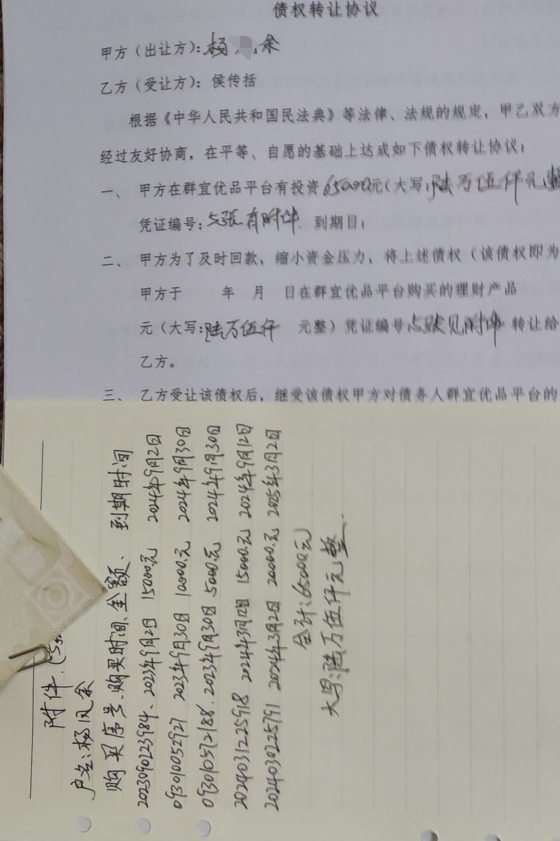 债权转让协议
甲方（出让方）：杨 余
乙方（受让方）：侯传括
根据《中华人民共和国民法典》等法律、法规的规定，甲乙双方
经过友好协商，在平等、自愿的基础上达成如下债权转让协议：
一、 甲方在群宜优品平台有投资65000元（大写：陆万伍仟元整
凭证编号：5张有附件 到期日：
二、 甲方为了及时回款，缩小资金压力，将上述债权（该债权即为
甲方于 年 月 日在群宜优品平台购买的理财产品
元（大写：陆万伍仟 元整）凭证编号5张见附件 转让给
乙方。
三、 乙方受让该债权后，继受该债权甲方对债务人群宜优品平台的
附件（5
户名：杨凤余
购买序号、购买时间、金额、到期时间
202309012 3984、2023年9月2日 15000元 2024年9月2日
093010052927 2023年9月30日 10000元 2024年9月30日
093010572188、2023年9月30日 5000元 2024年9月30日
202403122 5918 2024年3月12日 15000元 2024年9月12日
2024030225791 2024年3月2日 20000元 2025年3月2日
合计：65000元
大写：陆万伍仟元整